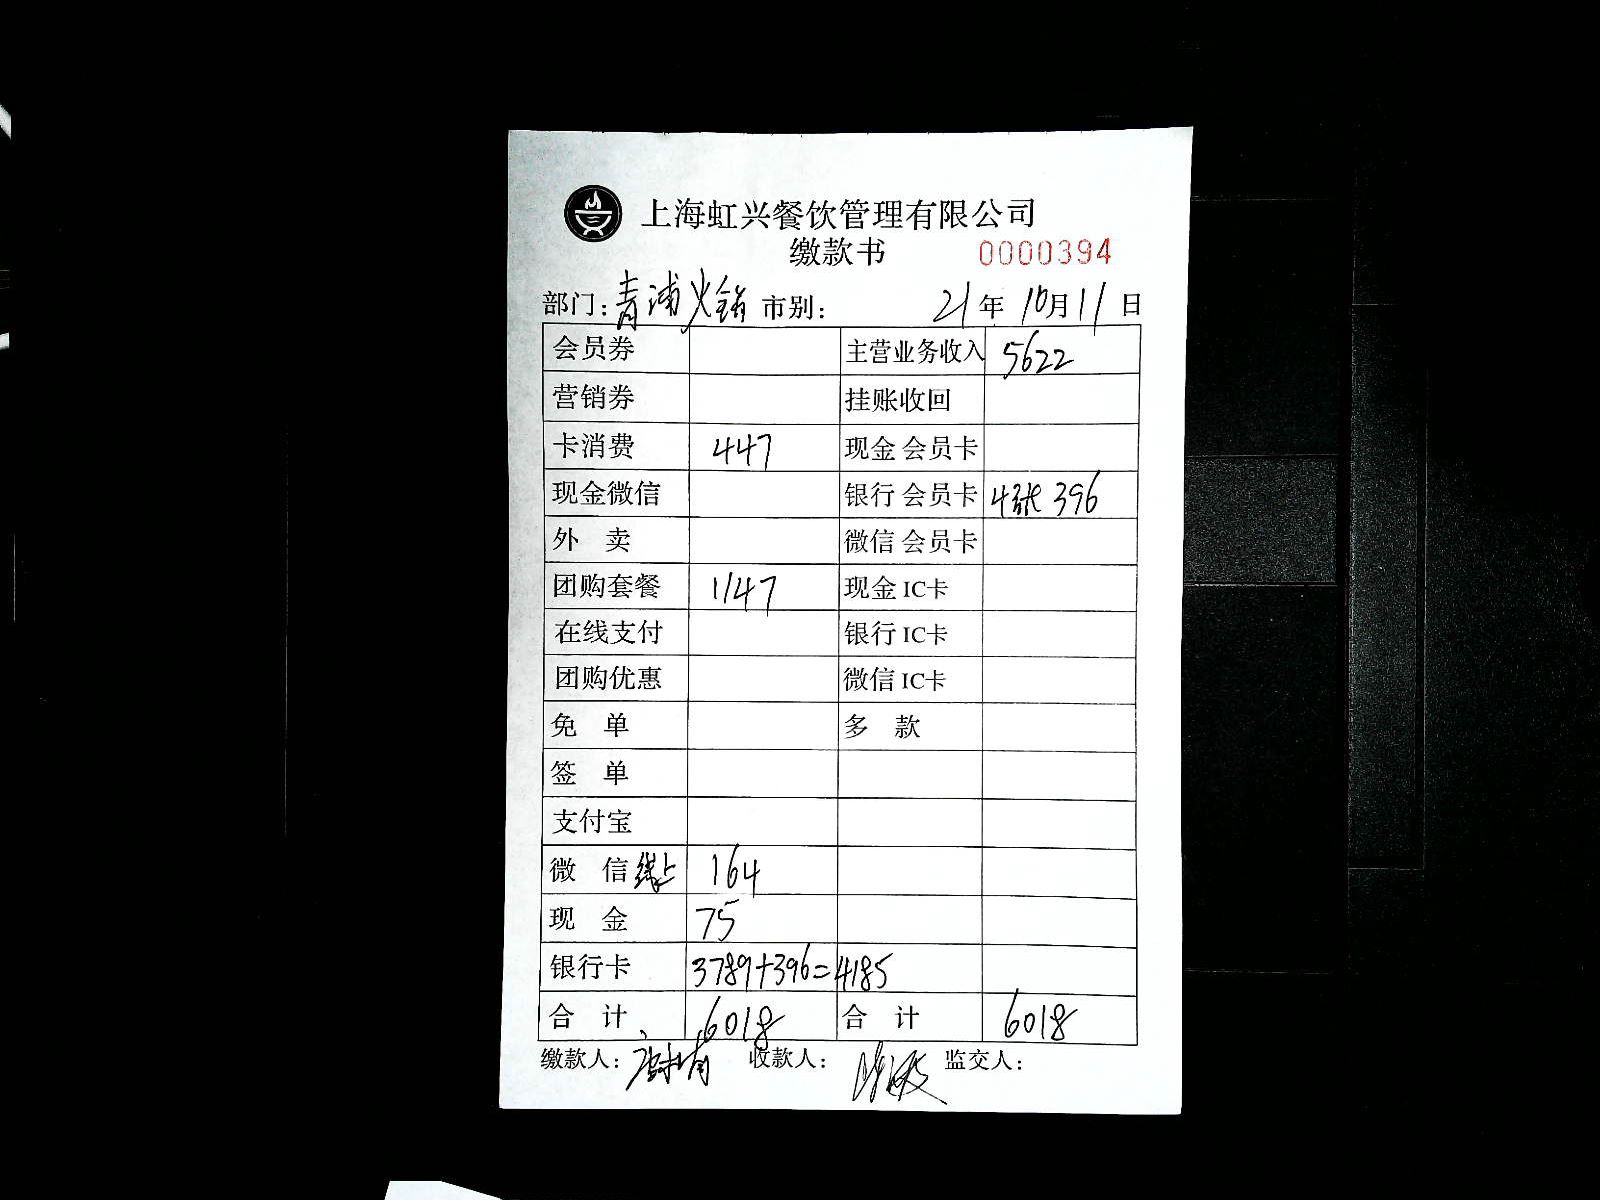 上海虹兴餐饮管理有限公司
缴款书 0000394
部门：青浦火锅 市别： 21年10月11日
会员券 主营业务收入 5622
营销券 挂账收回
卡消费 447 现金 会员卡
现金微信 银行 会员卡 4张 396
外 卖 微信 会员卡
团购套餐 1147 现金 IC卡
在线支付 银行 IC卡
团购优惠 微信 IC卡
免 单 多 款
签 单
支付宝
微 信 线上 164
现 金 75
银行卡 3789+396=4185
合 计 6018 合 计 6018
缴款人： 收款人： 监交人：